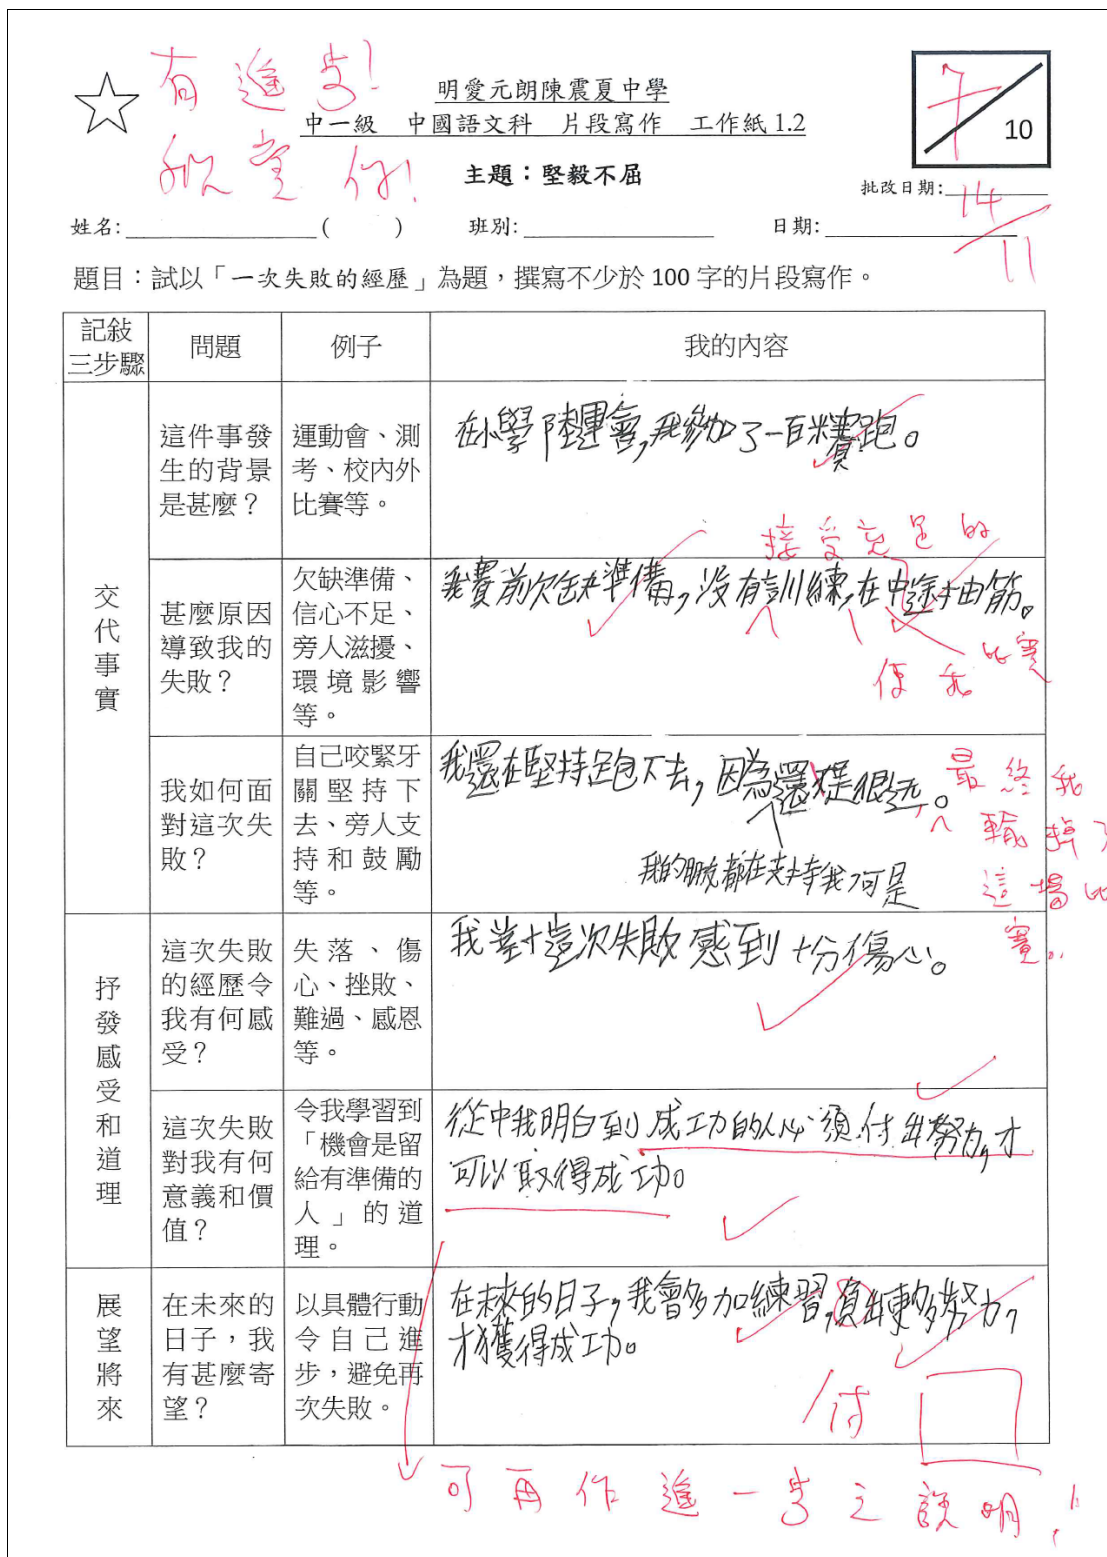 有進步！
欣賞你！
明愛元朗陳震夏中學
中一級 中國語文科 片段寫作 工作紙 1.2
主題：堅毅不屈
7
10
批改日期:
14
11
姓名: ( ) 班別: 日期:
題目：試以「一次失敗的經歷」為題，撰寫不少於 100 字的片段寫作。
記敍
三步驟
問題
例子
我的內容
交代事實
這件事發
生的背景
是甚麼？
運動會、測
考、校內外
比賽等。
在小學陸運會,我參加了一百米賽跑。
甚麼原因
導致我的
失敗？
欠缺準備、
信心不足、
旁人滋擾、
環境影響
等。
接受充足的
我賽前欠缺準備,沒有訓練,在中途抽筋。
使我
比賽
我如何面
對這次失
敗？
自己咬緊牙
關堅持下
去、旁人支
持和鼓勵
等。
我還在堅持跑下去,因為還是很远。
我的朋友都在支持我,可是
最終我
輸掉了
這場比
賽。
抒發感受和道理
這次失敗
的經歷令
我有何感
受？
失落、傷
心、挫敗、
難過、感恩
等。
我對這次失敗感到十分傷心。
這次失敗
對我有何
意義和價
值？
令我學習到
「機會是留
給有準備的
人」的道
理。
從中我明白到成功的人必須付出努力,才
可以取得成功。
展望將來
在未來的
日子，我
有甚麼寄
望？
以具體行動
令自己進
步，避免再
次失敗。
在未來的日子,我會多加練習,須出更多努力,
才獲得成功。
付
可再作進一步之說明！